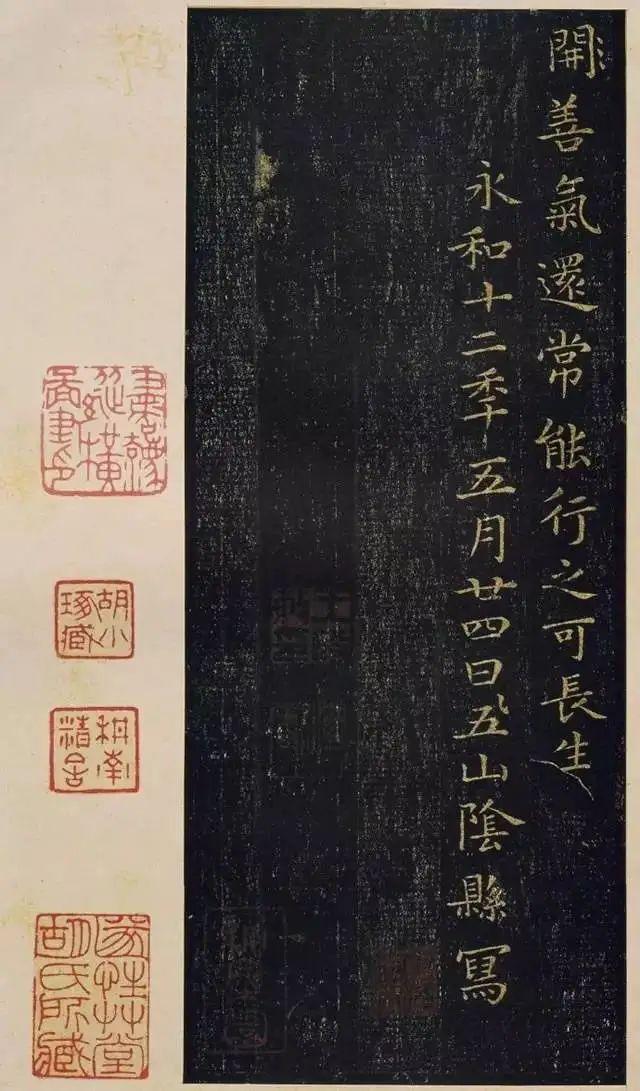 開善氣還常能行之可長生
永和十二年五月廿四日五山陰縣寫
胡小
琢藏
胡氏所藏